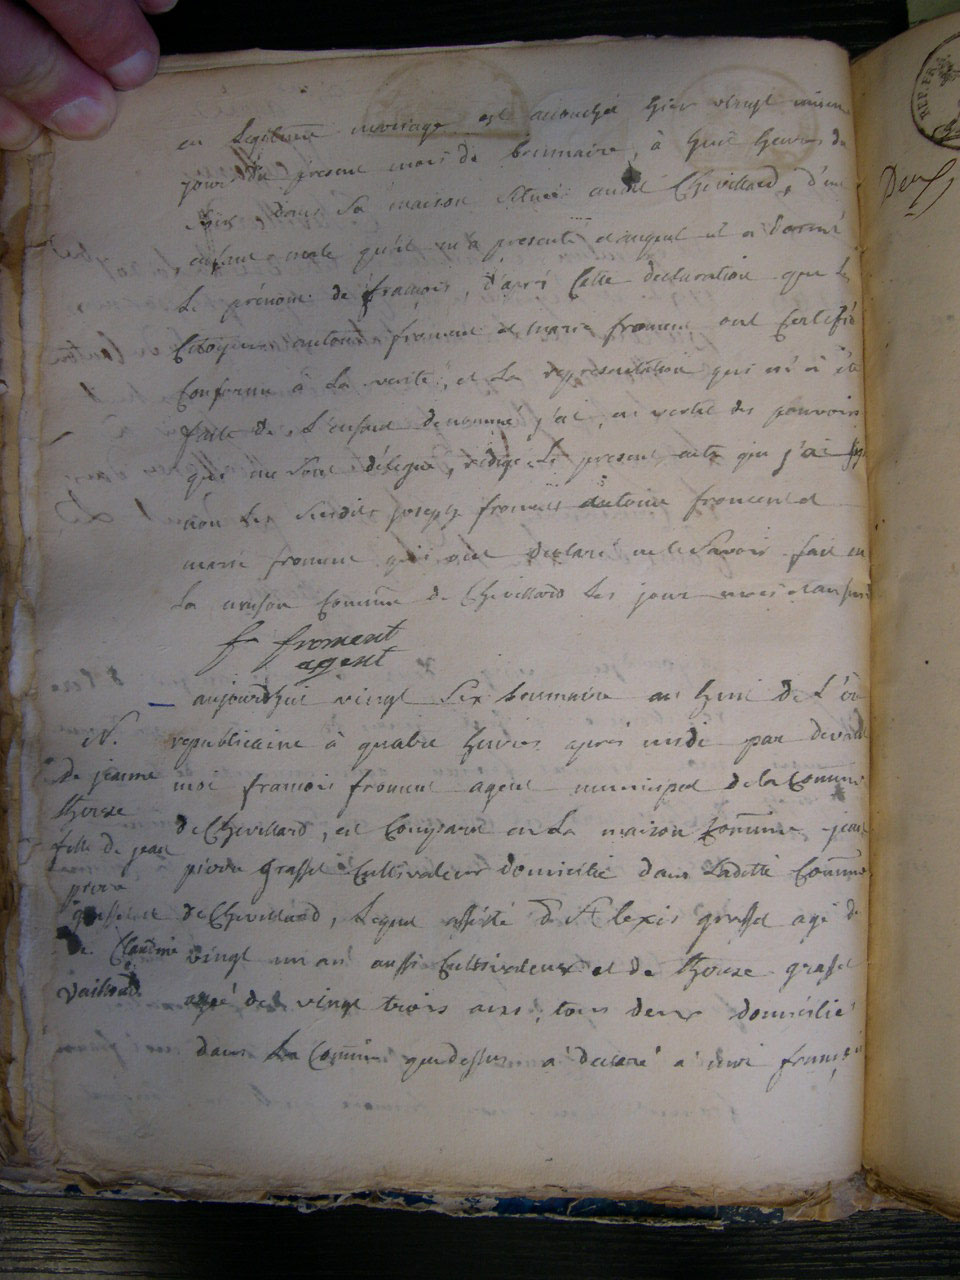 en Legitime mariage est accouchée hier vingt unieme
jour du présent mois de brumaire, à huit heures du
soir dans sa maison située audit Chevillard, d'un
enfant male qu'il m'a presenté et auquel il a donné
Le prénom de françois, d'aprés Cette declaration que les
Citoyens antoine froment et marie froment ont Certifié
Conforme à La verité, et La representation qui m'a été
faite de L'enfant denommé, j'ai, en vertu des pouvoirs
qui me sont délégué, rédigé Le present acte que j'ai signé
non Les susdits joseph froment antoine froment et
marie froment qui ont declaré ne le savoir fait en
La maison Commune de Chevillard Les jour mois et an susdit
fr froment
agent
aujourd'hui vingt six brumaire an huit de L'ère
republicaine à quatre heures après midi par devant
moi francois froment agent municipal de la Commune
de Chevillard, est Comparu en La maison Commune jean
pierre grasset Cultivateur domicilié dans Laditte Commune
de Chevillard, Lequel assisté d'Alexis grasset agé de
vingt un ans aussi Cultivateur et de therese grasset
agée de vingt trois ans, tous deux domicilié
dans La Commune que dessus a declaré a moi françois
N.
de jeanne
therese
fille de jean
pierre
grasset et
de Claudine
Vaillod
REP. FRA